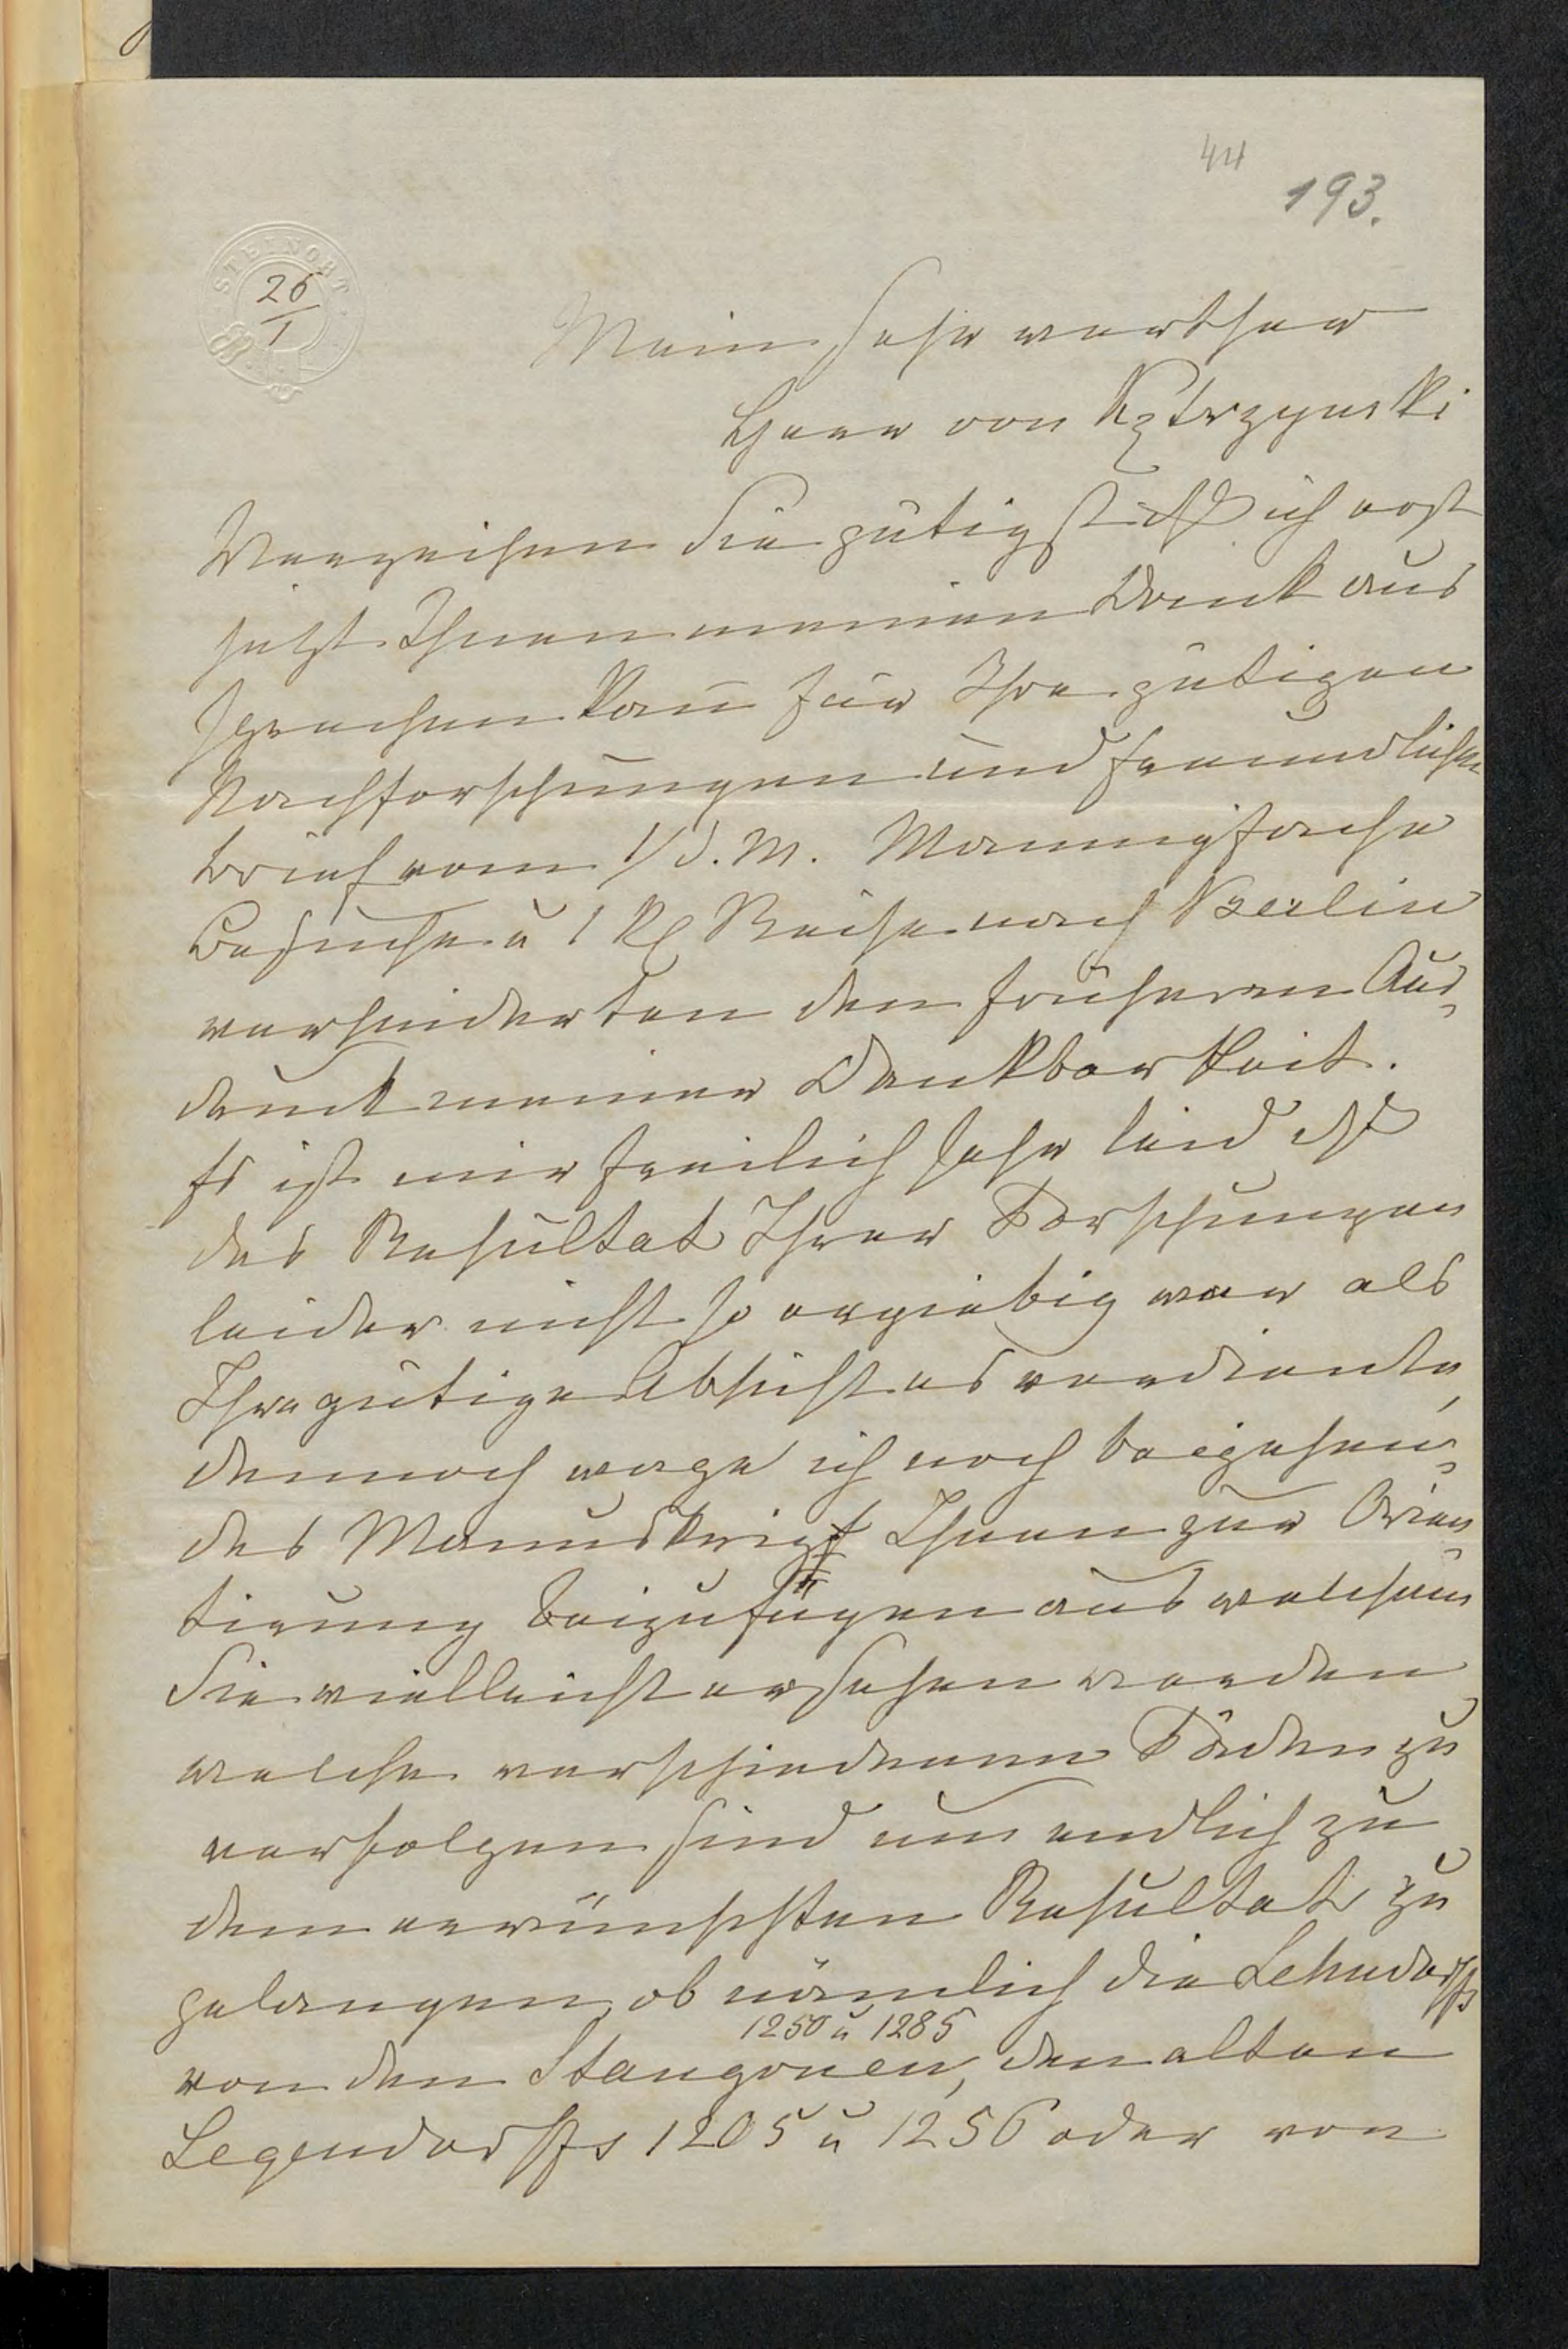 44
193.
STEINORT
26
1
Mein sehr werther
Herr von Kętrzynski
Verzeihen Sie gütigst daß ich erst
jetzt Ihnen meinen Dank aus
sprechen kann für Ihre gütigen
Nachforschungen und freundlichen
Brief vom 1/d. M. Mannigfache
Besuche u 1 kl Reise nach Berlin
verhinderten den früheren Aus-
druck meiner Dankbarkeit.
Es ist mir freilich sehr leid daß
das Resultat Ihrer Forschungen
leider nicht so ergiebig war als
Ihre gütige Absicht es verdiente,
dennoch wage ich noch beigehen-
des Manuskript Ihnen zur Orien-
tierung beizufügen aus welchem
Sie vielleicht ersehen werden
welche verschiedenen Fäden zu
verfolgen sind um endlich zu
dem erwünschten Resultat zu
gelangen, ob nämlich die Lehndorffs
1250 u 1285
von den Stangonen, den alten
Legendorffs 1205 u 1256 oder von